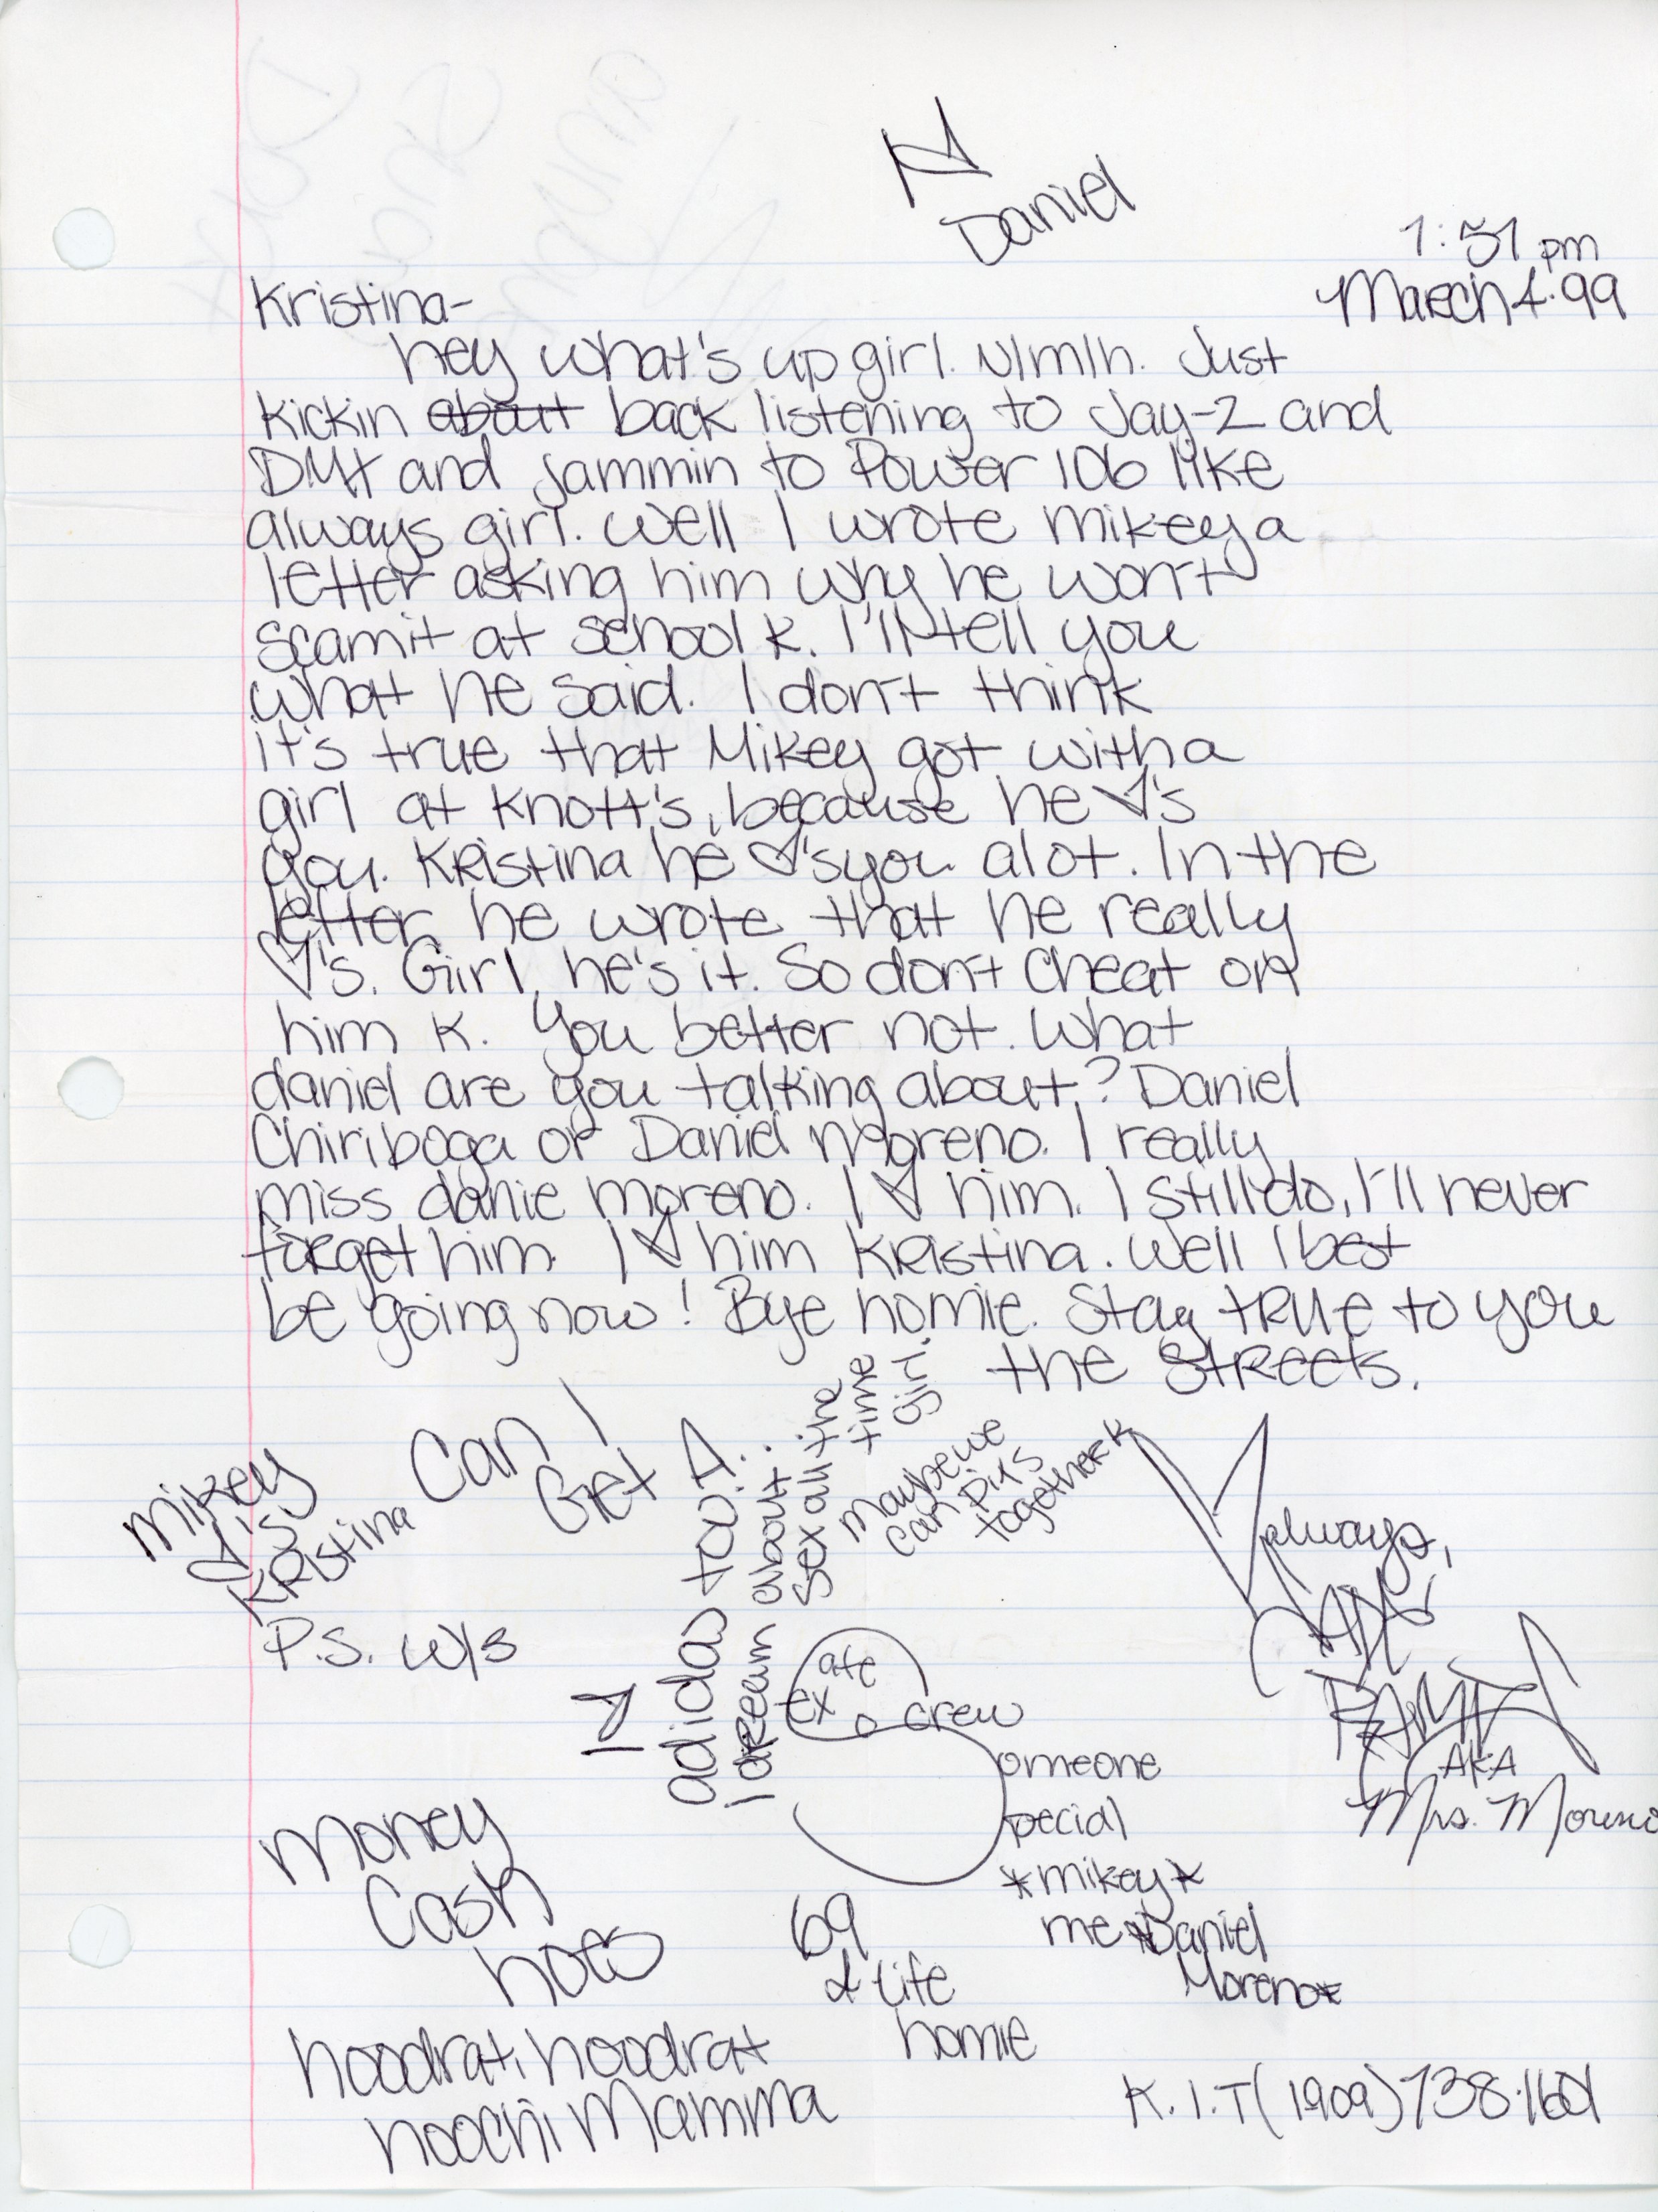 ♡ Daniel
7:57 pm
March 4. 99
Kristina-
hey what's up girl. N/m/h. Just
kickin about back listening to Jay-Z and
DMX and jammin to Power 106 like
always girl. Well I wrote mikey a
letter asking him why he won't
scam it at school k. I'll tell you
what he said. I don't think
it's true that Mikey got with a
girl at Knott's, because he ♡'s
you. Kristina he ♡'s you alot. In the
letter he wrote that he really
♡'s. Girl, he's it. So don't cheat on
him K. You better not. What
daniel are you talking about? Daniel
Chiriboga or Daniel Moreno. I really
miss danie moreno. I ♡ him. I still do, I'll never
forget him. I ♡ him Kristina. Well I best
be going now! Bye homie. Stay true to you
the streets.
Mikey
♡'s
Kristina
Can I
Get A...
adidas too!
I dream about
sex all the
time
girl.
Maybe we
can piks
together k
♡ always,
AKA
Mrs. Moreno
P.S. w/s
ate
ex
o crew
Someone
Special
*mikey*
me *Daniel
Moreno*
Money
Cash
hoes
69
4 life
homie
hoodrat, hoodrat
hoochi Mamma
K.I.T (1909) 738-1601